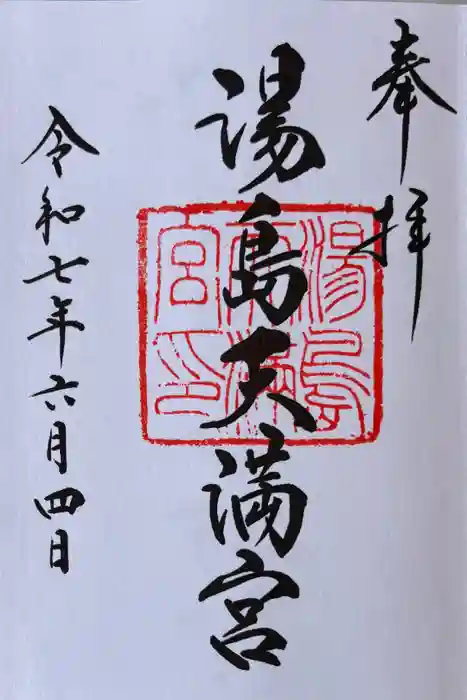 奉拝
湯島天満宮
湯島
天満
宮印
令和七年六月四日